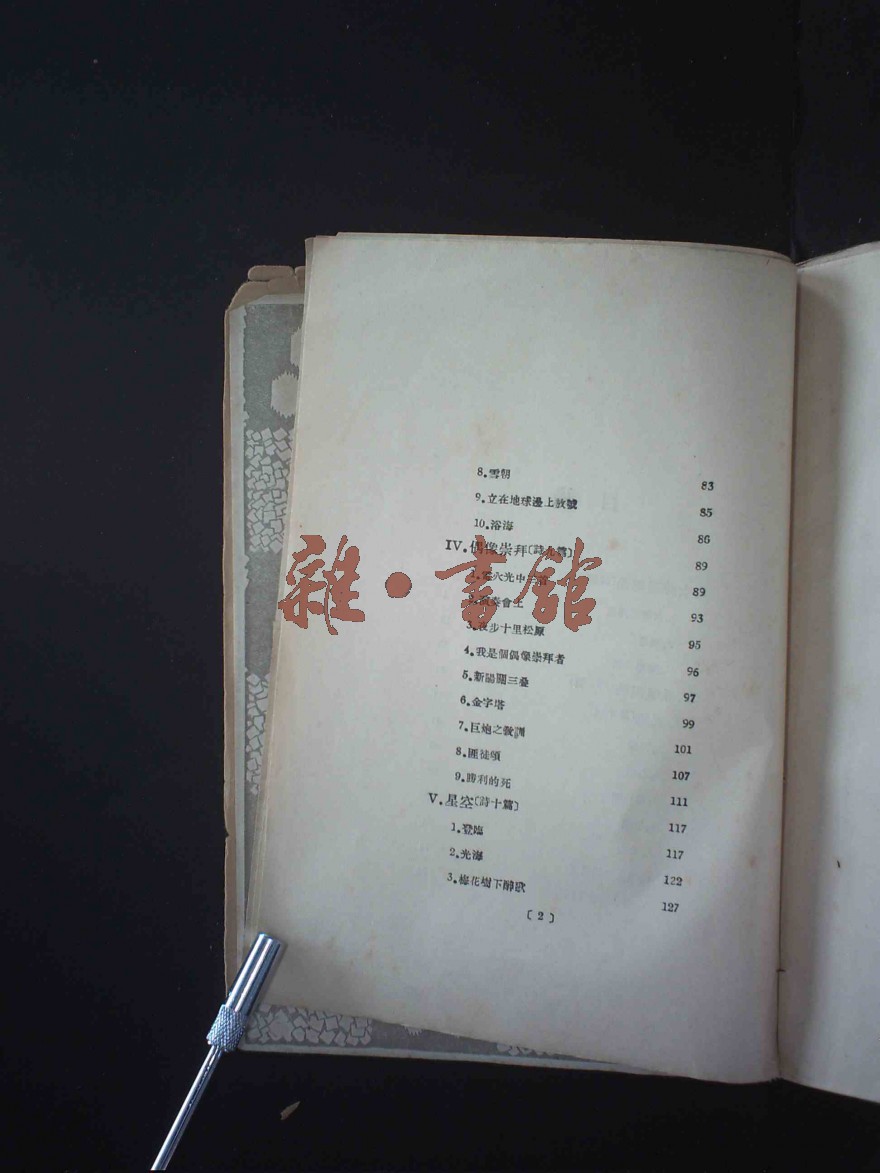 8.雪朝 83
9.立在地球邊上放號 85
10.浴海 86
IV.偶像崇拜〔詩九篇〕 89
1.電火光中 89
2.演奏會上 93
3.夜步十里松原 95
4.我是個偶像崇拜者 96
5.新陽關三疊 97
6.金字塔 99
7.巨炮之教訓 101
8.匪徒頌 107
9.勝利的死 111
V.星空〔詩十篇〕 117
1.登臨 117
2.光海 122
3.梅花樹下醉歌 127
〔2〕
雜·書館